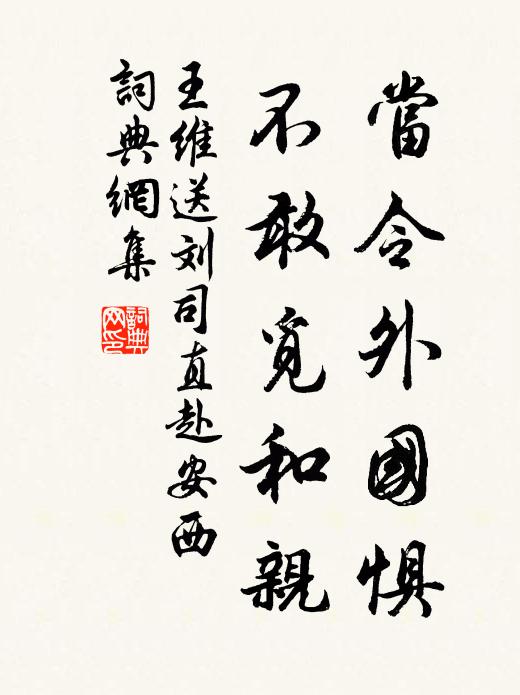 當令外國懼
不敢覓和親
王維送刘司直赴安西
詞典網集
詞典网印